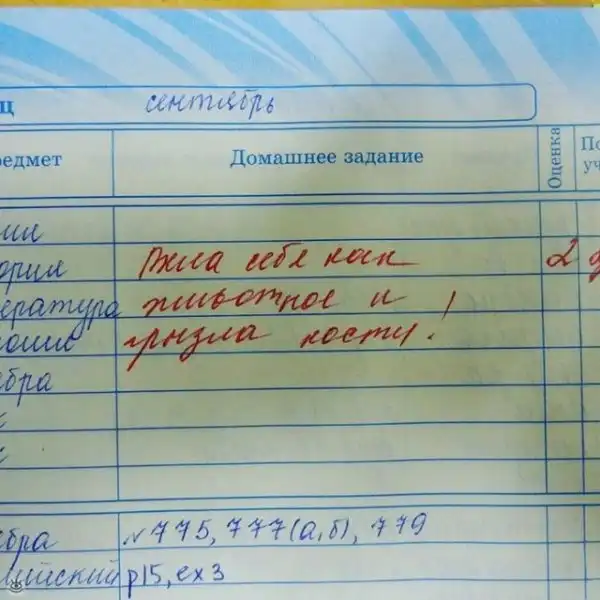 ц сентябрь
редмет Домашнее задание Оценка По уч
ии
ория Вела себя как 2
ература животное и
оми грызла кости!
ебра
ебра №775, 777(а,б), 779
лийский p15, ex 3